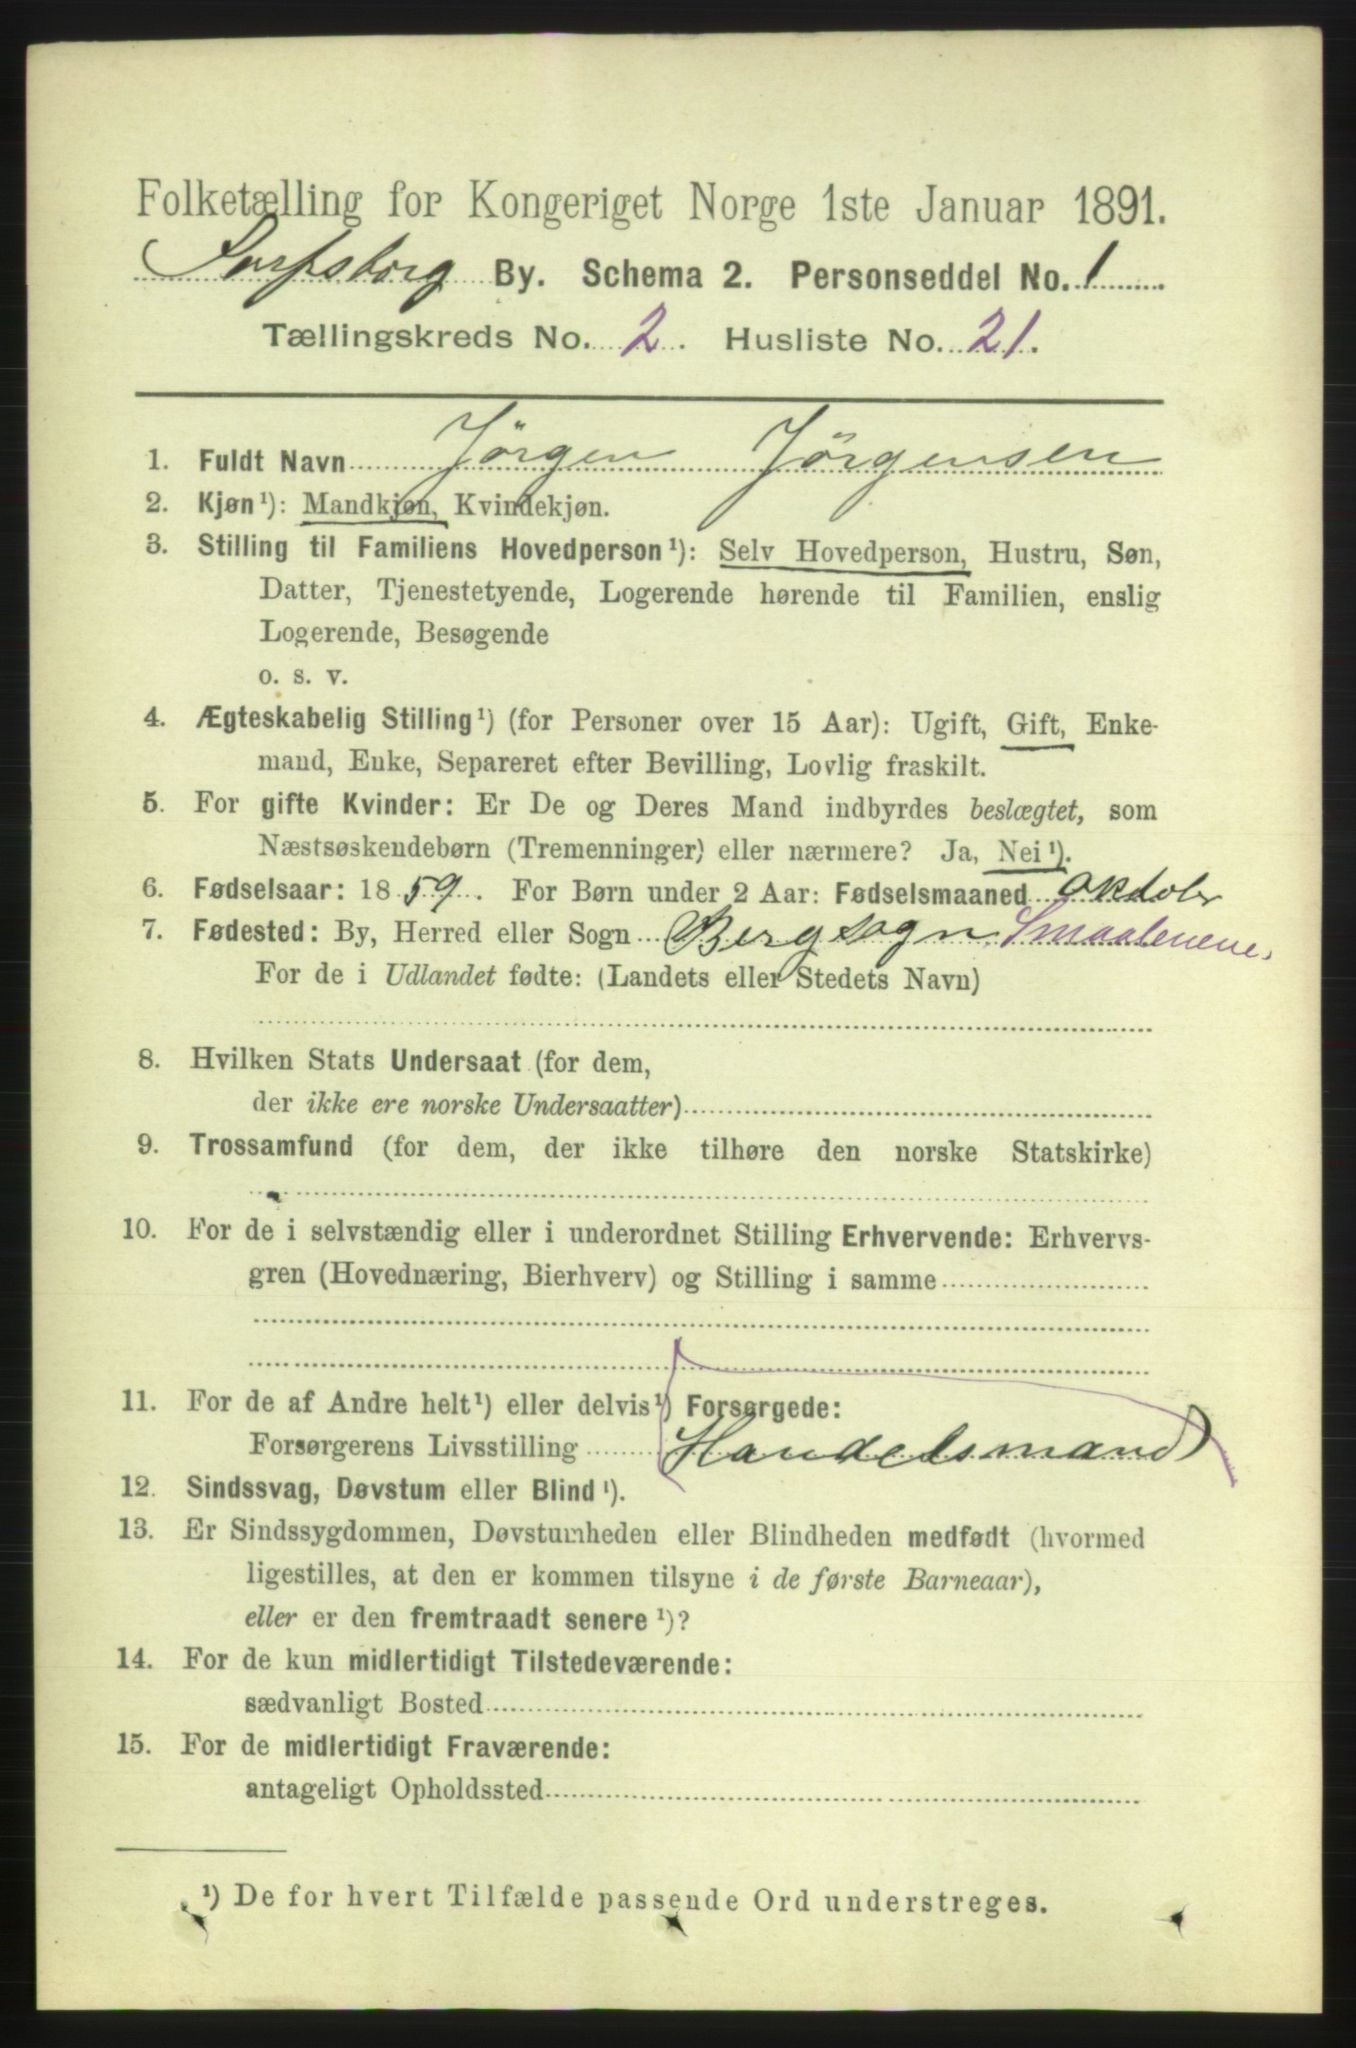 Folketælling for Kongeriget Norge 1ste Januar 1891.
Sarpsborg By. Schema 2. Personseddel No. 1
Tællingskreds No. 2. Husliste No. 21.
1. Fuldt Navn Jörgen Jörgensen
2. Kjøn¹): Mandkjøn, Kvindekjøn.
3. Stilling til Familiens Hovedperson¹): Selv Hovedperson, Hustru, Søn,
Datter, Tjenestetyende, Logerende hørende til Familien, enslig
Logerende, Besøgende
o. s. v.
4. Ægteskabelig Stilling¹) (for Personer over 15 Aar): Ugift, Gift, Enke-
mand, Enke, Separeret efter Bevilling, Lovlig fraskilt.
5. For gifte Kvinder: Er De og Deres Mand indbyrdes beslægtet, som
Næstsøskendebørn (Tremenninger) eller nærmere? Ja, Nei¹).
6. Fødselsaar: 1859. For Børn under 2 Aar: Fødselsmaaned Okdober
7. Fødested: By, Herred eller Sogn Berg sogn Smaalenene.
For de i Udlandet fødte: (Landets eller Stedets Navn)
8. Hvilken Stats Undersaat (for dem,
der ikke ere norske Undersaatter)
9. Trossamfund (for dem, der ikke tilhøre den norske Statskirke)
10. For de i selvstændig eller i underordnet Stilling Erhvervende: Erhvervs-
gren (Hovednæring, Bierhverv) og Stilling i samme
11. For de af Andre helt¹) eller delvis¹) Forsørgede:
Forsørgerens Livsstilling Handelsmand
12. Sindssvag, Døvstum eller Blind¹).
13. Er Sindssygdommen, Døvstumheden eller Blindheden medfødt (hvormed
ligestilles, at den er kommen tilsyne i de første Barneaar),
eller er den fremtraadt senere¹)?
14. For de kun midlertidigt Tilstedeværende:
sædvanligt Bosted
15. For de midlertidigt Fraværende:
antageligt Opholdssted
¹) De for hvert Tilfælde passende Ord understreges.